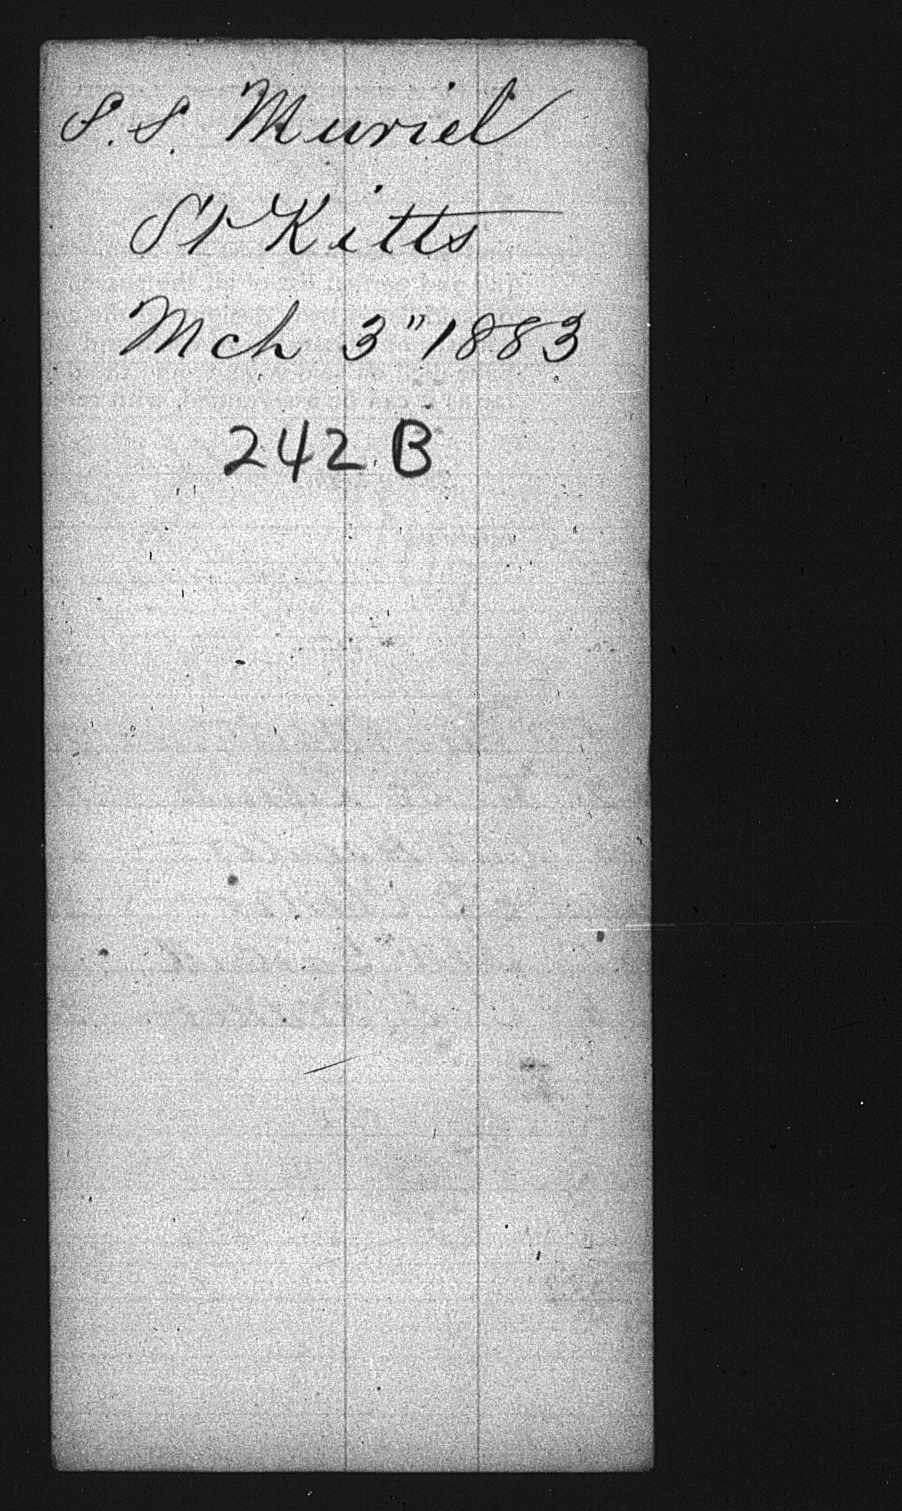 S.S. Muriel
St Kitts
Mch 3" 1883
242 B